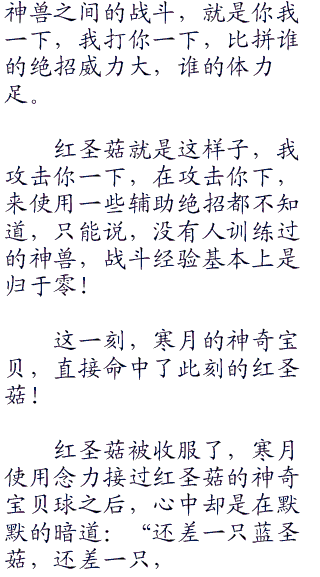 神兽之间的战斗，就是你我
一下，我打你一下，比拼谁
的绝招威力大，谁的体力
足。
红圣菇就是这样子，我
攻击你一下，在攻击你下，
来使用一些辅助绝招都不知
道，只能说，没有人训练过
的神兽，战斗经验基本上是
归于零！
这一刻，寒月的神奇宝
贝，直接命中了此刻的红圣
菇！
红圣菇被收服了，寒月
使用念力接过红圣菇的神奇
宝贝球之后，心中却是在默
默的暗道：“还差一只蓝圣
菇，还差一只，